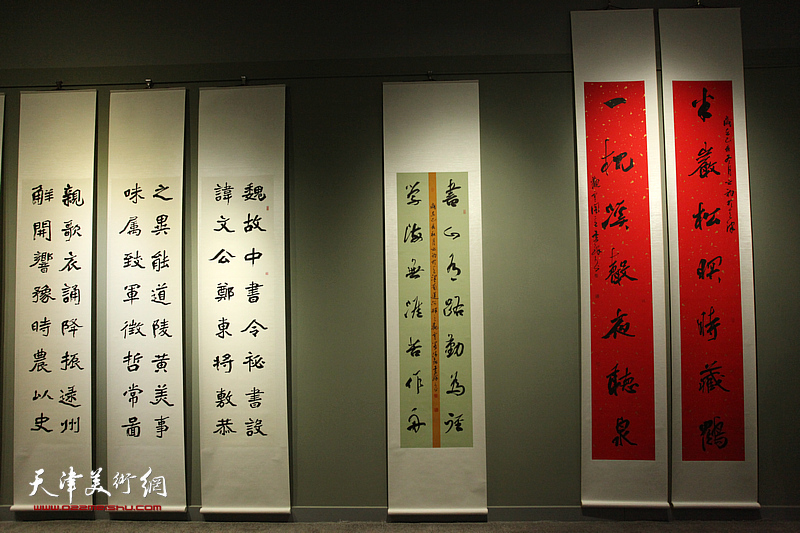 魏故中書令祕書設
諱文公鄭東将敷恭
之異能道陵黄美事
味属致軍徴哲常啚
親歌衣誦降振逺州
觧開響豫時農以史
書山有路勤為徑
学海無涯苦作舟
半巖松暝時藏鶴
一枕溪聲夜聽泉
天津美術網
www.022meishu.com